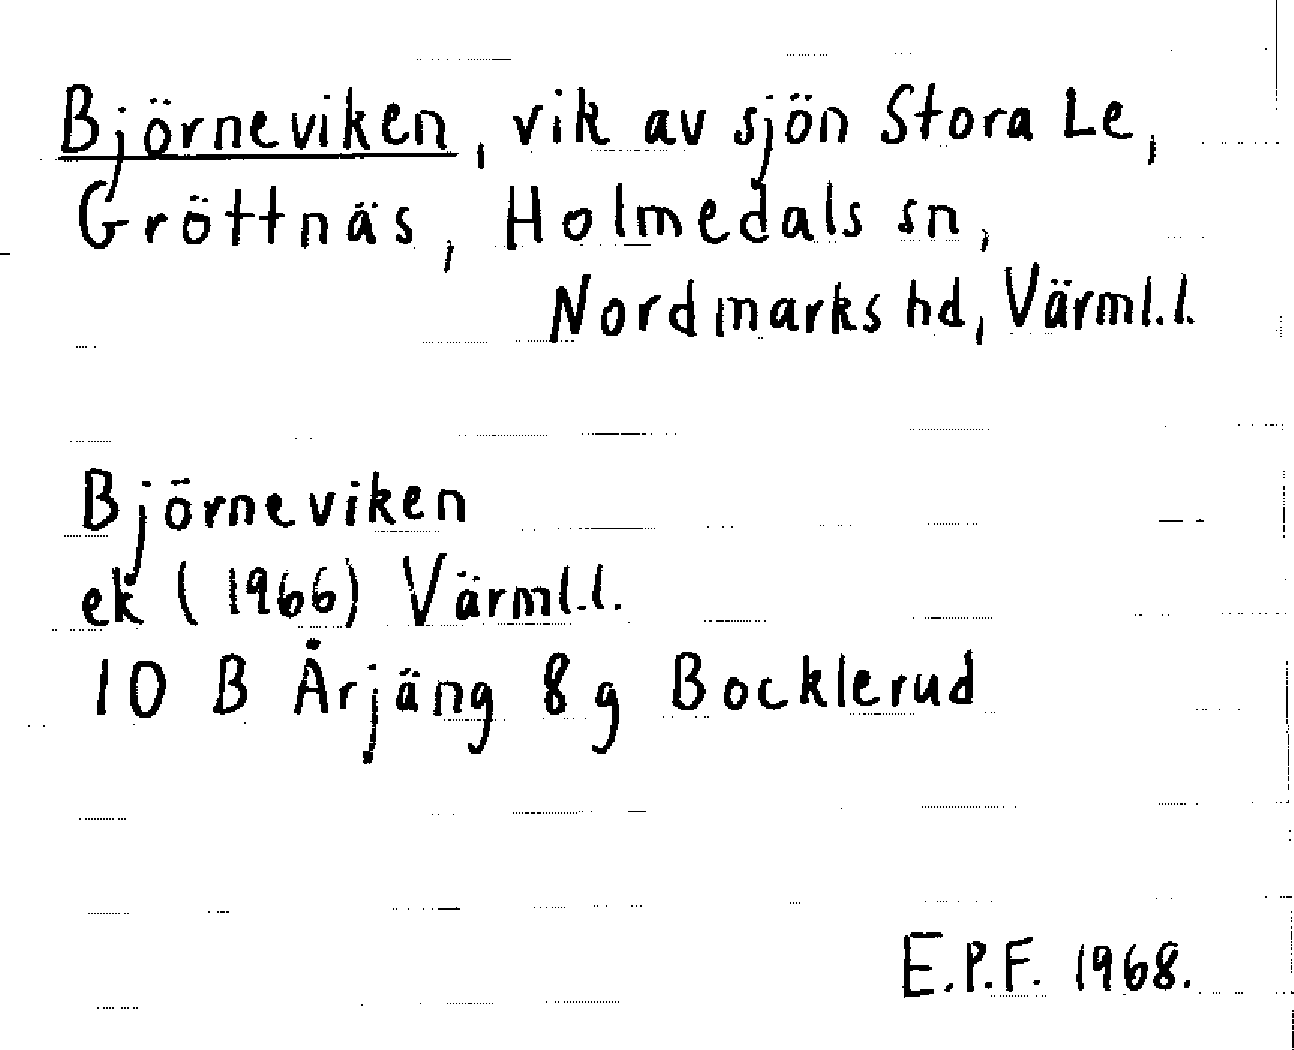 Björneviken, vik av sjön Stora Le,
Gröttnäs, Holmedals sn,
Nordmarks hd, Värml.l.
Björneviken
ek (1966) Värml.l.
10 B Årjäng 8g Bocklerud
E.P.F. 1968.